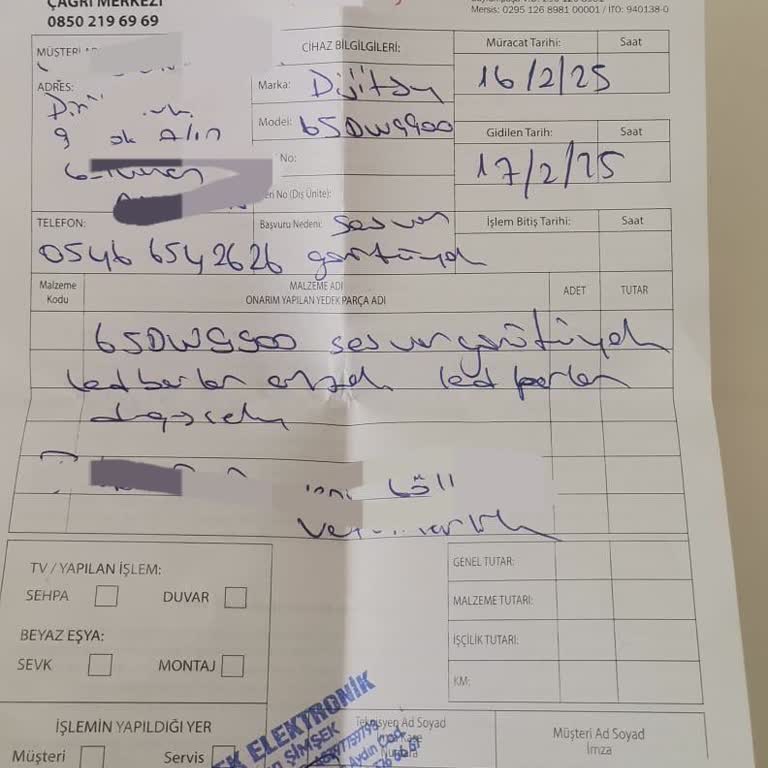 ÇAĞRI MERKEZİ
0850 219 69 69
Mersis: 0295 126 8981 00001 / İTO: 940138-0
MÜŞTERİ
ADRES:
9 sk
CİHAZ BİLGİLGERİ:
Marka: Dijitsu
Model: 65DW9900
No:
eri No (Dış Ünite):
Başvuru Nedeni: ses var
görüntü yok
Müracat Tarihi: Saat
16/2/25
Gidilen Tarih: Saat
17/2/25
İşlem Bitiş Tarihi: Saat
TELEFON:
0546 654 2626
Malzeme Kodu
MALZEME ADI
ONARIM YAPILAN YEDEK PARÇA ADI
ADET
TUTAR
65DW9900 ses var görüntü yok
led barlar arızalı led barlar
TV / YAPILAN İŞLEM:
SEHPA DUVAR
BEYAZ EŞYA:
SEVK MONTAJ
İŞLEMİN YAPILDIĞI YER
Müşteri Servis
GENEL TUTAR:
MALZEME TUTARI:
İŞÇİLİK TUTARI:
KM:
ELEKTRONİK
ŞİMŞEK
Teknisyen Ad Soyad
Müşteri Ad Soyad
İmza